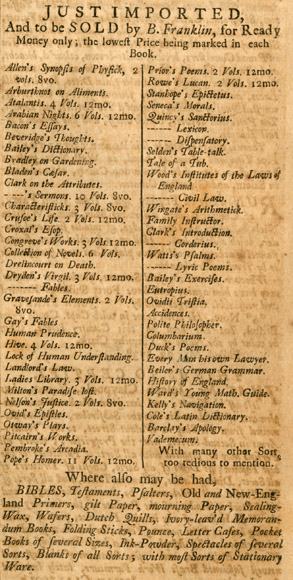 JUST IMPORTED,
And to be SOLD by B. Franklin, for Ready
Money only; the lowest Price being marked in each
Book.
Allen's Synopsis of Physick, 2
vols. 8vo.
Arburthnot on Aliments.
Atalantis. 4 Vols. 12mo.
Arabian Nights. 6 Vols. 12mo.
Bacon's Essays.
Beveridge's Thoughts.
Bailey's Dictionary.
Bradley on Gardening.
Bladen's Cæsar.
Clark on the Attributes.
----'s Sermons. 10 Vols. 8vo.
Characteristicks. 3 Vols. 8vo.
Crusoe's Life. 2 Vols. 12mo.
Croxal's Esop.
Congreve's Works. 3 Vols 12mo.
Collection of Novels. 6 Vols.
Drelincourt on Death.
Dryden's Virgil. 3 Vols. 12mo.
------- Fables.
Gravesande's Elements. 2 Vols.
8vo.
Gay's Fables
Human Prudence.
Hive. 4 Vols. 12mo.
Lock of Human Understanding.
Landlord's Law.
Ladies Library. 3 Vols. 12mo.
Milton's Paradise lost.
Nelson's Justice. 2 Vols. 8vo.
Ovid's Epistles.
Otway's Plays.
Pitcairn's Works.
Pembroke's Arcadia.
Pope's Homer. 11 Vols. 12mo.
Prior's Poems. 2 Vols. 12mo.
Rowe's Lucan. 2 Vols. 12mo.
Stanhope's Epictetus.
Seneca's Morals.
Quincy's Sanctorius.
------ Lexicon.
------ Dispensatory.
Selden's Table-talk.
Tale of a Tub.
Wood's Institutes of the Laws of
England
------ Civil Law.
Wingate's Arithmetick.
Family Instructor.
Clark's Introduction.
----- Corderius.
Watts's Psalms.
------ Lyric Poems.
Bailey's Exercises.
Eutropius.
Ovidii Tristia.
Accidences.
Polite Philosopher.
Columbarium.
Duck's Poems.
Every Man his own Lawyer.
Beiler's German Grammar.
History of England.
Ward's Young Math. Guide.
Kelly's Navigation.
Cole's Latin Dictionary.
Barclay's Apology.
Vademecum.
With many other Sort,
too tedious to mention.
Where also may be had,
BIBLES, Testaments, Psalters, Old and New-Eng-
land Primers, gilt Paper, mourning Paper, Sealing-
Wax, Wafers, Dutch Quills, Ivory-leav'd Memoran-
dum Books, Folding Sticks, Pounce, Letter Cases, Pocket
Books of several Sizes, Ink-Powder, Spectacles of several
Sorts, Blanks of all Sorts; with most Sorts of Stationary
Ware.